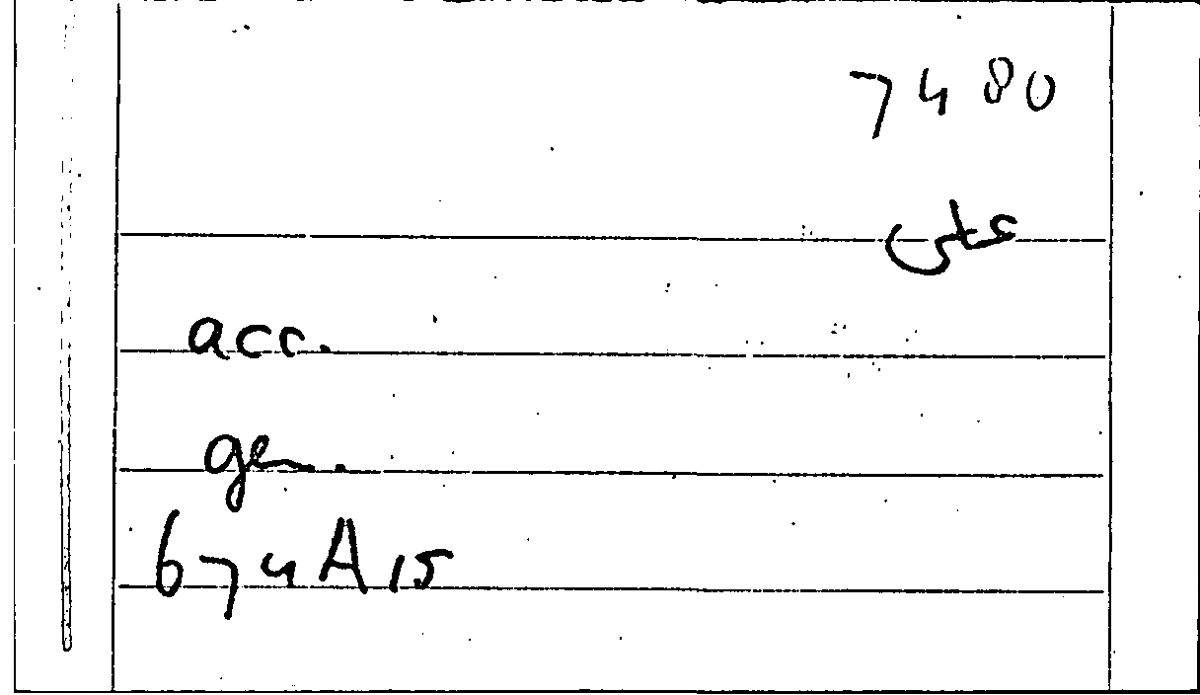 7480
acc.
gen.
674A15